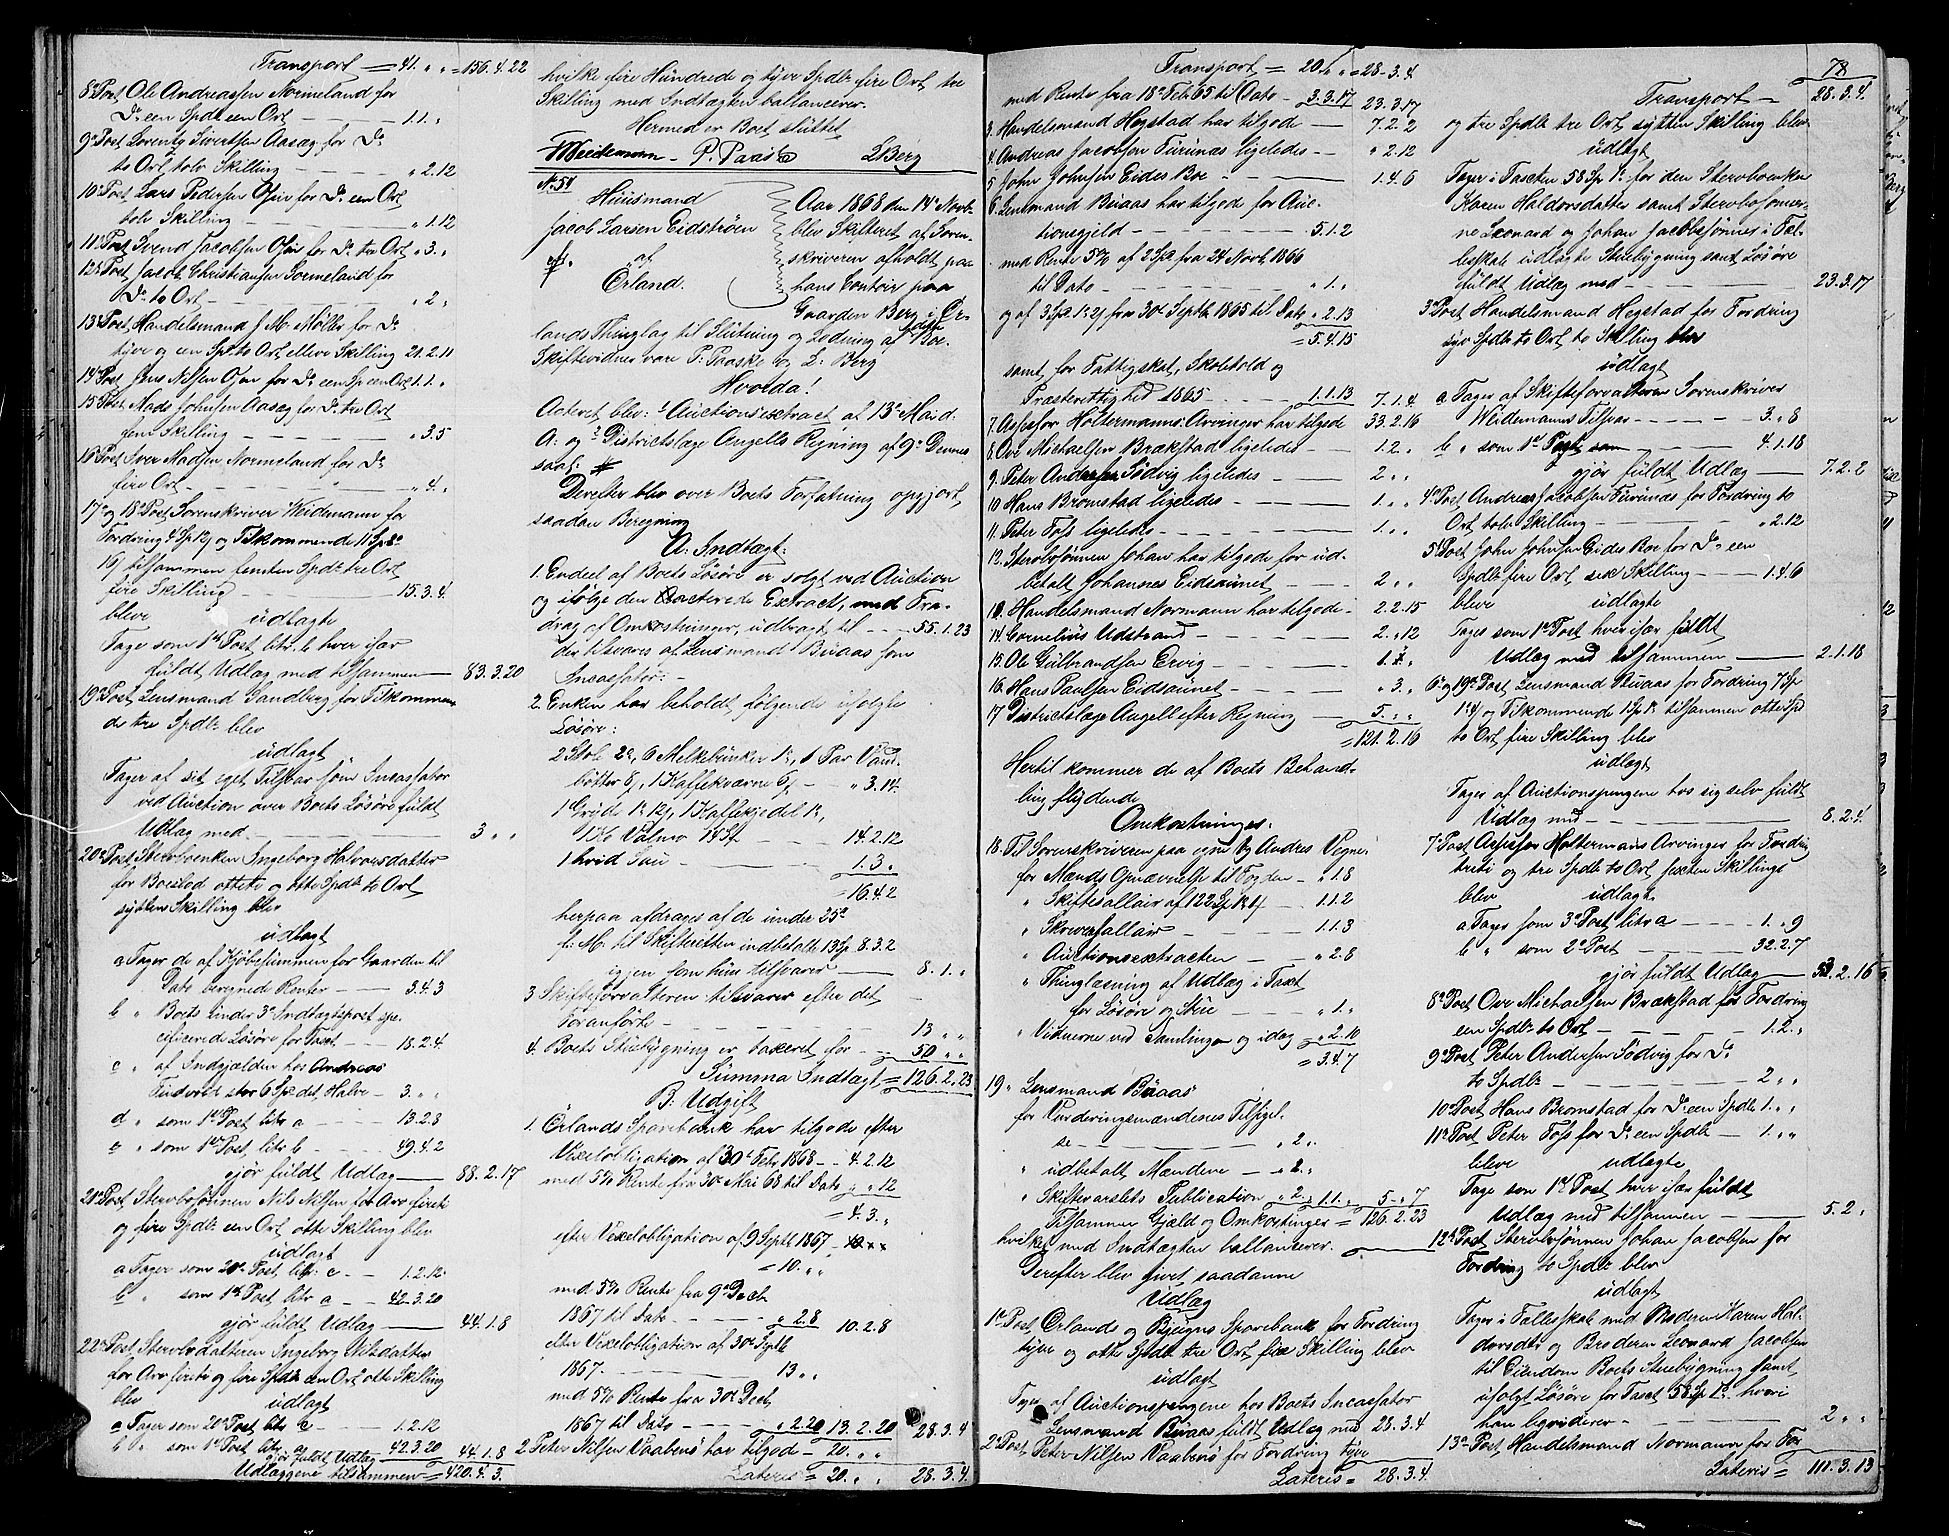 Transport = 41. „ „ = 156.4.22
8de Post Ole Andreassen Normeland for
Do een Spdl een Ort — 1.1. „
9de Post Lorentz Sivertsen Aasæg for Do
to Ort tolv Skilling — „ 2.12
10de Post Lars Pedersen Osen for Do een Ort
tolv Skilling — „ 1.12
11te Post Svend Jacobsen Osen for Do tre Ort „ 3. „
12te Post Jacob Christiansen Sormeland for
Do to Ort — „ 2 „
13de Post Handelsmand J. M. Møller for Do
tyve og een Spd. to Ort elleve Skilling 21.2.11
14de Post Jens Nilsen Osen for Do een Sp een Ort 1.1. „
15de Post Mads Johnsen Aasæg for Do tre Ort
fem Skilling — „ 3.5
16de Post Iver Madsen Normeland for Do
fire Ort — „ 4. „
17de og 18de Post Sorenskriver Weidemann for
Fordring 4 Sp 12 og Tilkommende 11 Sp 3
16 tilsammen femten Spdl tre Ort
fire Skilling — 15.3.4.
bleve udlagte
Tage som 1ste Post litr. b hver især
fuldt Udlæg med tilsammen — 83.3.20
19de Post Lensmand Sandberg for Tilkommen-
de tre Spdlr blev
udlagt
Tager af sit eget Tilsvar som Incassator
ved Auction over Boets Løsøre fuldt
Udlæg med — 3 „ „
20de Post Sterboenken Ingeborg Halvorsdatter
for Boeslod otteti og otte Spdlr to Ort
sytten Skilling blev
udlagt
a Tager de af Kjøbesummen for Gaarden til
Dato beregnede Renter — 3.4.3
b „ Boets under 3de Indtægtspost spe-
cificerede Løsøre for Taxt — 18.2.4.
c „ af Indgjælden hos Andreas
stor 6 Sp det Halve — 3. „ „
d „ som 1ste Post litr a — 13.2.8
e „ som 1ste Post, litr b — 49.4.2
gjør fuldt Udlæg — 88.2.17
21de Post Sterbosønnen Nils Nilsen for Arv firti
og fire Spdlr een Ort otte Skilling blev
udlagt
a Tager som 20de Post, litr. e — 1.2.12
b „ som 1ste Post litr a — 42.3.20
gjør fuldt Udlæg — 44.1.8
22de Post Sterbodatteren Ingeborg Nilsdatter
for Arv firti og fire Spdlr een Ort otte Skilling
blev udlagt
a Tager som 20de Post litr e — 1.2.12
b „ som 1ste Post litr a 42.3.20
gjør fuldt Udlæg 44.1.8
Udlæggene tilsammen = 420.4.3.
hvilke fire Hundrede og tyve Spdlr fire Ort tre
Skilling med Indtægten ballancerer.
Hermed er Boet sluttet
Weidemann — P. Paaske L Berg
No. 54
Huusmand
Jacob Larsen Eidstrøen
af
Ørland.
Aar 1868 den 14de Novbr
blev Skifteret af Soren-
skriveren afholdt paa
hans Contoir paa
Gaarden Berg i Ør-
lands Thinglag til Slutning og Lodning af dette Boe.
Skiftevidner vare P. Paaske og L. Berg
Hvorda!
Acteret blev: 1 Auctionsextract af 13de Mai d.
A. og 2 Districtslæge Angells Regning af 9de Dennes
saal:
Derefter blev over Boets Forfatning opgjort
saadan Beregning
A: Indtægt:
1. Endeel af Boets Løsøre er solgt ved Auction
og ifølge den acterede Extract, med Fra-
drag af Omkostninger, udbragt til — 55.1.23
der tilsvares af Lensmand Buaas som
Incassator. —
2. Enken har beholdt følgende usolgte
Løsøre:
2 Stole 2e, 6 Melkebunker 1e, 1 Par Vand-
bøtter 8, 1 Kaffekværne 6 — „ 3.14.
1 Gryde 1 12, 1 Kaffekjedel 1,
1/2 Vaaning 14 Sp — 14.2.12
1 hvid Sau — 1.3. „
= 16.4.2
herpaa afdrages af de under 25de
f. M. til Skifteretten indbetalte 13 Sp. 8.3.2
igjen som hun tilsvarer — 8.1. „
3 Skifteforvalteren tilsvarer efter det
Foranførte — 13 „ „
4. Boets Stuebygning er taxeret for — 50 „ „
Summa Indtægt = 126.2.23
B: Udgift
1. Ørlands Sparebank har tilgode efter
Vexelobligation af 30te Febr 1868 — 4.2.12
med 5% Rente fra 30te Mai 68 til Dato „ „ 12
= 4.3. „
efter Vexelobligation af 9 Septbr 1867 —
= 10. „ „
med 5% Rente fra 9de Decb
1867 til Dato — „ 2.8 10.2.8
efter Vexelobligation af 30te Septbr
1867 — 13 „ „
med 5% Rente fra 30te Decb
1867 til Dato — „ 2.20 13.2.20 28.3.4
2. Peter Nilsen Vaabenø har tilgode — 20. „ „
Lateris = 20. „ „ 28.3.4.
Transport = 20 „ „ = 28.3.4
med Rente fra 18de Feb 65 til Dato — 3.3.17 23.3.17
3. Handelsmand Hegstad har tilgode — 7.2.2
4. Andreas Jacobsen Furunæs ligeledes — „ 2.12
5 John Johnsen Eides Boe — 1.4.6
6. Lensmand Buaas har tilgode for Auc-
tionsgjeld — 5.1.2
med Rente 5% af 2 Sp fra 24 Novb 1866
til Dato — „ 1. „
og af 3 Sp 1.2 fra 30te Septb 1865 til Dato „ 2.13
= 5.4.15
samt for Fattigskat, Skolehold og
Præsterettighed 1865 — 1.1.13 7.1.4
7. Assessor Holtermanns Arvinger har tilgode 33.2.16
8. Ove Michaelsen Brækstad ligeledes — 1.2. „
9. Peter Andersen Sødvig ligeledes — 2 „ „
10 Hans Bromstad ligeledes — 1. „ „
11. Peter Foss ligeledes — 1. „ „
12. Sterbosønnen Johan har tilgode for ud-
betalt Johannes Eidsaunet — 2 „ „
13. Handelsmand Normann har tilgode — 2.2.15
14. Cornelius Udstrand — 2. „ 12
15. Ole Gulbrandsen Ervig — 1. „
16. Hans Paulsen Eidsaunet — „ 3. „
17 Districtslæge Angell efter Regning — 5. „ „
= 121.2.16
Hertil kommer de af Boets Behand-
ling flydende
Omkostninger:
18. Til Sorenskriveren paa egne og Andres Vegne:
for Mænds Opnævnelse til Fogden — „ 1.8
„ Skiftesallair af 122 Sp 1.14 — 1.1.2
„ Skriversallair — 1.1.3
„ Auctionsextracten — „ 2.8
„ Thinglæsning af Udlæg i Taxt
for Løsøre og Stue — „ 1. „
„ Vidnerne ved Samlingen og idag „ 2.10
= 3.4.7
19 „ Lensmand Buaas
for Vurderingsmændenes Tilsigel-
se — „ 2. „
„ udbetalt Mændene — „ 2 „
„ Skiftevarslets Publication „ 2 „ 1.1. „ 5. „ 7
Tilsammen Gjæld og Omkostninger = 126.2.23
hvilket med Indtægten ballancerer.
Derefter blev givet saadanne
Udlæg
1ste Post Ørlands og Bjugns Sparebank for Fordring
tyve og otte Spdlr tre Ort fire Skilling blev
udlagt
Tager af Auctionspengene hos Boets Incassator
Lensmand Buaas fuldt Udlæg med 28.3.4
2de Post Peter Nilsen Vaabenø for Fordring tyve
Lateris = 28.3.4.
78
Transport — 28.3.4.
og tre Spdlr tre Ort sytten Skilling blev
udlagt
Tager i Taxten 58 Sp 1 for den Sterboenken
Karen Haldorsdatter samt Sterbosønner-
ne Leonard og Johan Jacobssønner i Fæl-
lesskab udlagte Stuebygning samt Løsøre
fuldt Udlæg med — 23.3.17
3de Post Handelsmand Hegstad for Fordring
syv Spdlr to Ort to Skilling blev
udlagt
a Tager af Skifteforvalteren Sorenskriver
Weidemanns Tilsvar — 3. „ 8
b „ som 1ste Post — 4.1.18
gjør fuldt Udlæg — 7.2.2
4de Post Andreas Jacobsen Furunæs for Fordring to
Ort tolv Skilling — „ 2.12
5te Post John Johnsen Eides Boe for Do een
Spdlr fire Ort sex Skilling — 1.4.6
bleve udlagte
Tages som 1ste Post hver især fuldt
Udlæg med tilsammen — 2.1.18
6te og 19de Post Lensmand Buaas for Fordring 7 Sp
1.4 og Tilkommende 1 Sp 1 tilsammen otte Spd
to Ort fire Skilling blev
udlagt
Tager af Auctionspengene hos sig selv fuldt
Udlæg med — 8.2.4.
7de Post Assessor Holtermanns Arvinger for Fordring
treti og tre Spdlr to Ort sexten Skilling
blev udlagt
a Tager som 3de Post litr a — 1. „ 9
b „ som 2de Post — 32.2.7
gjør fuldt Udlæg — 33.2.16
8de Post Ove Michaelsen Brækstad for Fordring
een Spdlr to Ort — 1.2. „
9de Post Peter Andersen Sødvig for Do
to Spdlr — 2 „ „
10de Post Hans Bromstad for Do een Spdlr 1. „ „
11te Post Peter Foss for Do een Spdlr — 1. „ „
bleve udlagte
Tage som 1ste Post hver især fuldt
Udlæg med tilsammen — 5.2 „
12te Post Sterbosønnen Johan Jacobsen for
Fordring to Spdlr blev
udlagt
Tager i Fællesskab med Moderen Karen Hal-
dorsdtr og Broderen Leonard Jacobsen
til Eiendom Boets Stuebygning samt
usolgt Løsøre for Taxt 58 Sp 1, hvori
han liqviderer — 2 „ „
13de Post Handelsmand Normann for For-
Lateris = 111.3.13